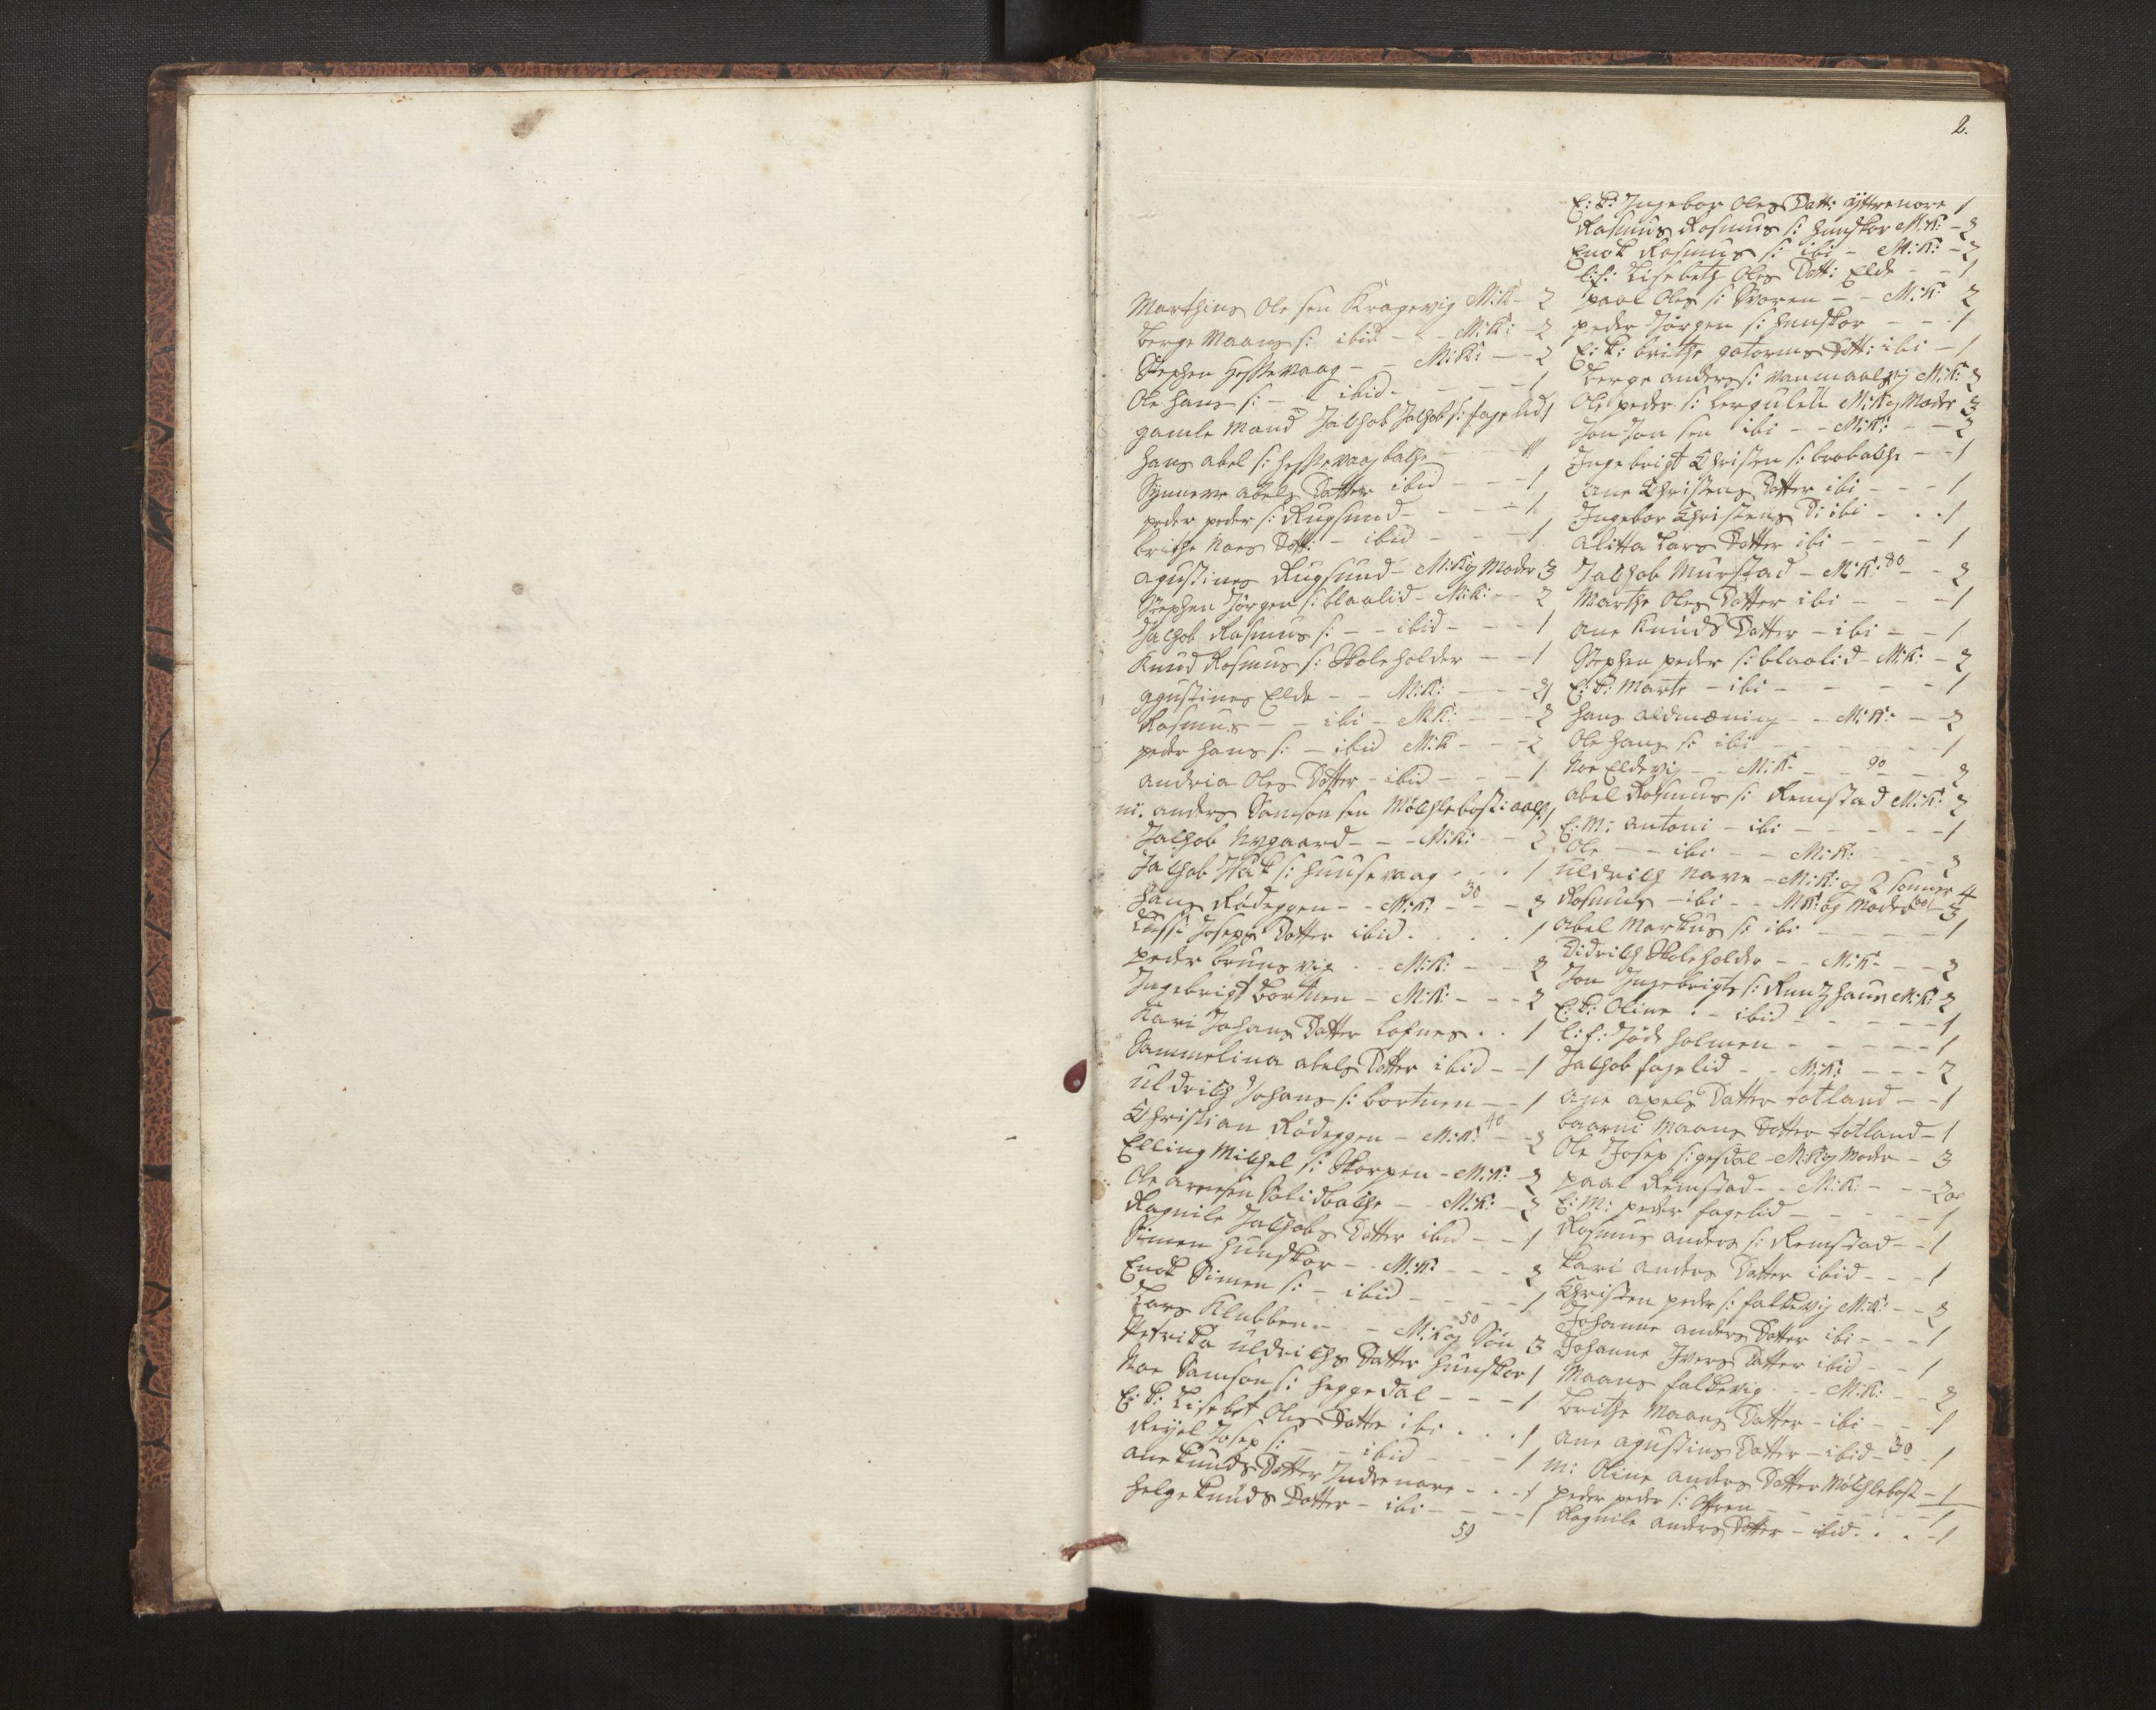 2.
Marthins Ole sen Kragevig M:K - 2
Berge Maans s: ibid - - M:K: - 2
Stephen Hessevaag - - M:K: - - 2
Ole Hans s: - ibid - - - - 1
gamle Mand Jachob Jachob s: fagelid 1
Hans abel s: Hessevaagbache - - -
Synneve abels Datter ibid - - - 1
peder peder s: Rugsund - - - - 1
brithe Noes Datt: - ibid - - - 1
agustines Rugsund - M:K og Moder 3
Stephen Jørgen s: blaalid - M:K: - - 2
Jachob Rasmus s: - - ibid - - - 1
Knud Rasmus s: Skoleholder - - 1
agustines Elde - - M:K: - - - 2
Rasmus - - ibi - M:K: - - - 2
peder Hans s: - ibid M:K - - - 2
andria Oles Datter - ibid - - - 1
ni. anders Samson sen Møchlebost: 1
Jachob Nygaard - - - M:K: - - 2
Jachob s: Huusevaag - - - 1
Hans Rødeggen - - M:K: - 30 - - 2
Josephs Datter ibid . . . . 1
peder bruns vig - - M:K: - - - 2
Ingebrigt bortnen - M:K: - - - 2
Kari Johans Datter Lofnes . . 1
Sammelina abels Datter ibid - - 1
uldrich Johans s: bortnen - - 1
Christian Rødeggen - M:K: 40 - - 2
Elling Michel s: Skorpen - M:K: - 2
Ole arnesen Solidbache - - M:K: - 2
Ragnile Jachobs Datter ibid - - 1
Simen Hundskor - - M:K: - - - 2
Enok Simen s: - ibid - - - - 1
Lars Klubben - - - M:K og 50 Søn 3
Petrika uldrichs Datter Hundskor 1
Noe Samson s: Heggedal - - - 1
E: k: Lisebet Oles Datter ibi . . . 1
Josep s: - - ibid - - - - 1
ane knuds Datter Indrenore - - - 1
helge knuds Datter - ibi - - - - 1
59
E: k: Ingebor Oles Datt: yttrenore 1
Rasmus Rasmus s: Hundskor M:K: - 2
Enok Rasmus s: ibi - M:K: - 2
Lisebeth Oles Datt: Elde - - 1
paal Oles s: - - M:K: 2
peder Jørgen s: Hundskor - - - 1
E: k: brithe gotorms Datt: ibi - 1
berge anders s: vanmaalvig M:K: 2
Ole peder s: M:K og Moder 3
Jon Jon sen ibi - - M:K: - - 2
Ingebrigt Christen s: - - 1
ane Christens Datter ibi - - - 1
Ingebor Christens D: ibi - . . 1
alitta Lars Datter ibi - - - 1
Jachob Murstad - M:K: 80 - - 2
Marthe Oles Datter ibi - - - 1
ane Knuds Datter - ibi - - 1
Stephen peder s: blaalid - M:K: - 2
E: k: Marte - ibi - - - - 1
Hans aldmæning - - M:K: - - 2
Ole Hans s: ibi - - - - - 1
Noe Eldevig - - M:K - - 90 - 2
abel Rasmus s: Remstad M:K: 2
E: M: antoni - ibi - - - - - 1
Ole - - ibi - - M:K: - - - 2
uldrich Nave - M:K: og 2 sønner 4
Rasmus - ibi - - M:K: og Moder 3
abel Markus s: ibi - - - - - 1
Didrich Skoleholder - - M:K: - - 2
Jon Ingebrigt s: M:K: 2
E: k: Oline - - ibid - - - - 1
holmen - - - - - 1
Jachob fagelid - - M:K: - - - 2
ane axels Datter totland - - 1
Maans Datter totland - 1
Ole Josep s: - M:K og Moder - 3
paal Remstad - - M:K: - - - 2
E: M: peder fagelid - - - - - 1
Rasmus anders s: Remstad - - 1
kari anders Datter ibid - - - 1
Christen peder s: falkevig M:K: - - 2
Johanne anders Datter ibi - - - 1
Johanne Ivers Datter ibid - - 1
Maans falkevig - - - M:K: - - 2
brithe Maans Datter - ibi - - 1
ane agustins Datter - ibid - 30 . 1
m: Oline anders Datter Møchlebost - 1
peder peder s: - - - - 1
Ragnile anders Datter - ibid . . - 1